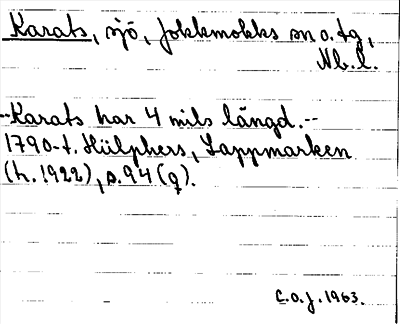 Karats, sjö, Jokkmokks sn o. tg,
Nb.l.
--Karats har 4 mils längd.--
1790-t. Hülphers, Lappmarken
(h.1922), s.94 (q).
C.O.J. 1963.